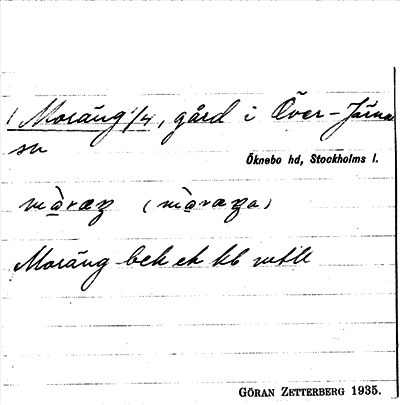 Moräng 1/4, gård i Över-Järna
sn
Öknebo hd, Stockholms l.
Moräng bek ek kb
GÖRAN ZETTERBERG 1935.